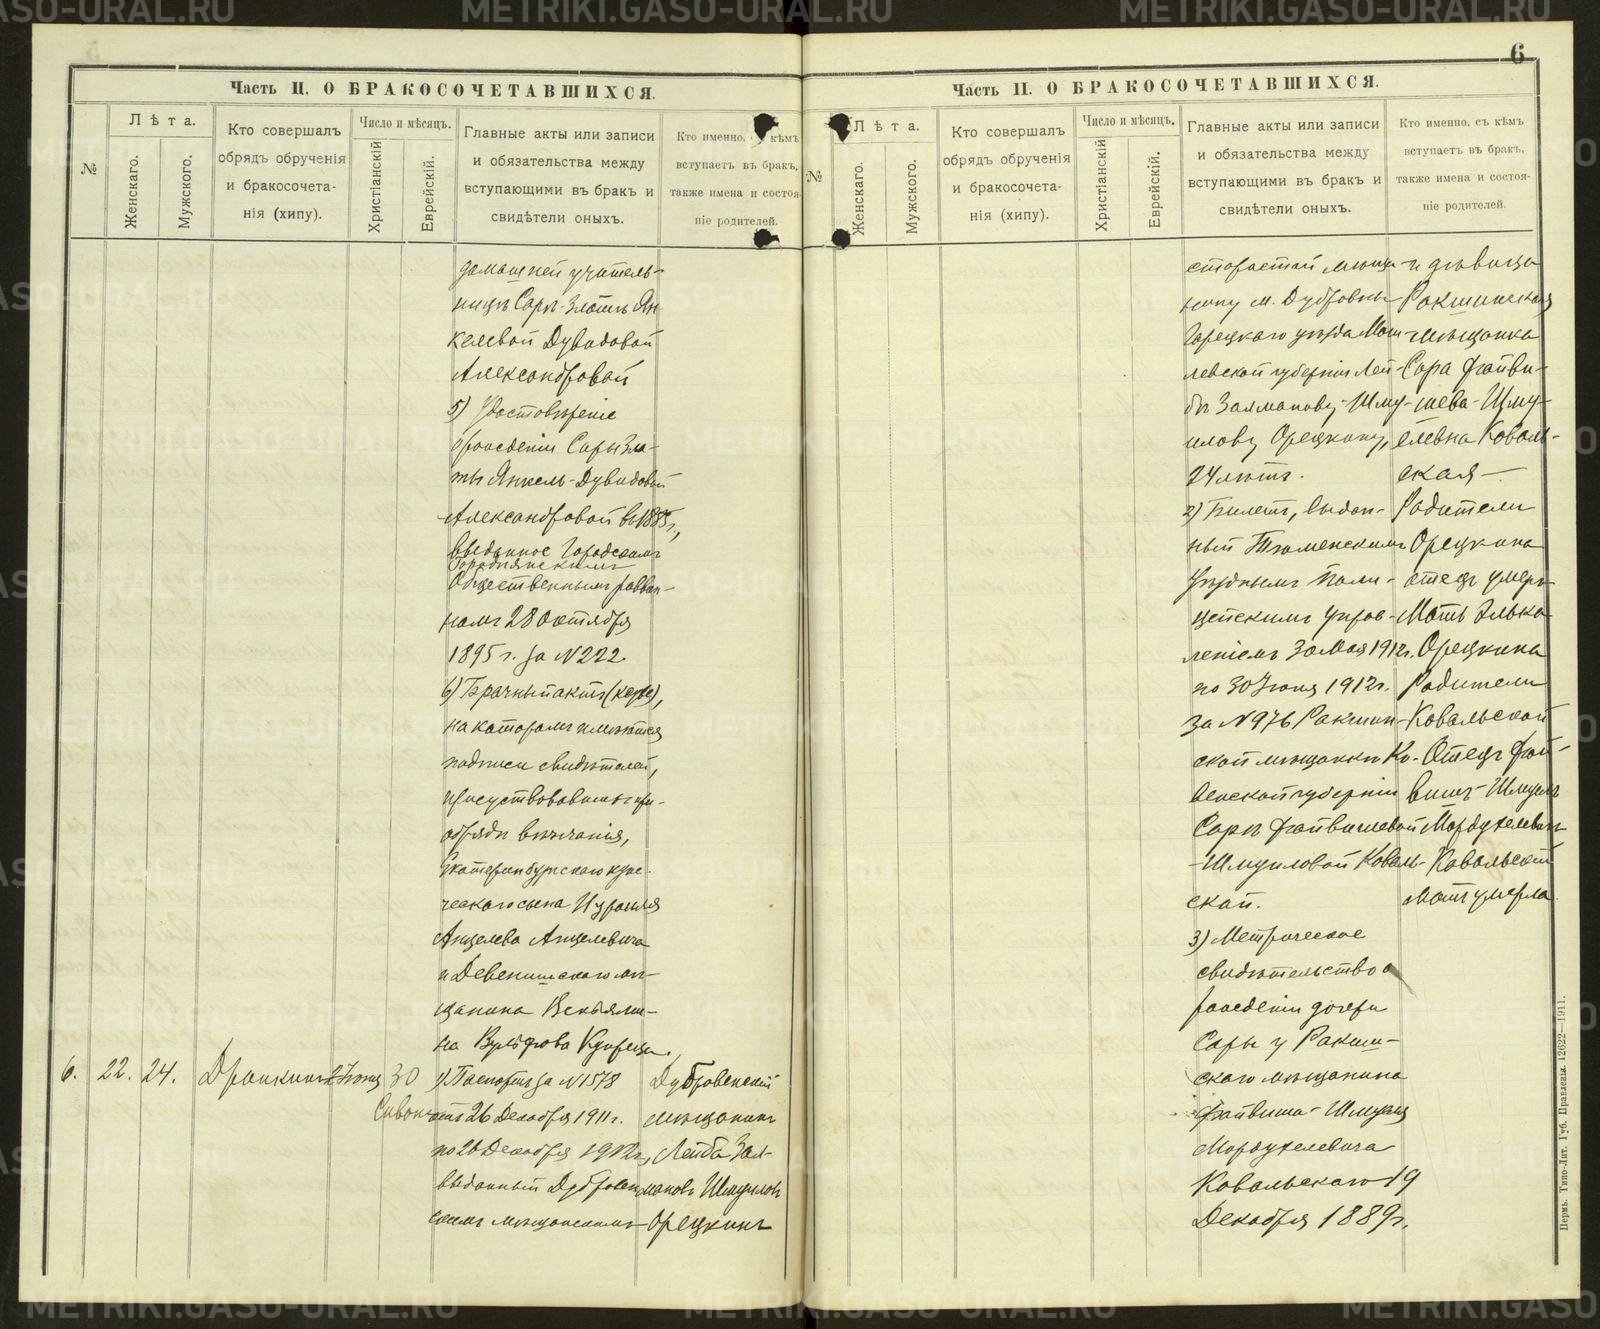 METRIKI.GASO-URAL.RU
6
Часть II. О БРАКОСОЧЕТАВШИХСЯ.
№
Лѣта.
Женскаго.
Мужского.
Кто совершалъ
обрядъ обрученія
и бракосочета-
нія (хипу).
Число и мѣсяцъ.
Христіанскій
Еврейскій.
Главные акты или записи
и обязательства между
вступающими въ бракъ и
свидѣтели оныхъ.
Кто именно, съ кѣмъ
вступаетъ въ бракъ,
также имена и состоя-
ніе родителей.
домашней учитель-
ницѣ Сарѣ-Златѣ Ян-
келевой Дувидовой
Александровой
5) Удостовѣреніе
о рожденіи Сары Зла-
ты Янкель-Дувидовой
Александровой въ 1885 г.,
выданное Городскимъ
Общественнымъ равви-
номъ 28 октября
1895 г. за № 222.
6) Брачный актъ
на которомъ имѣются
подписи свидѣтелей,
присутствовавшихъ при
обрядѣ вѣнчанія,
Екатеринбургскаго купе-
ческаго сына Израиля
Анцелева Анцелевича
и Девенишскаго мѣ-
щанина Веньями-
на Вульфова
6.
22.
24.
Дронкинъ
30
Сивонъ
1) Паспортъ за № 1578
отъ 26 Декабря 1911 г.
по 26 Декабря 1912 г.,
выданный Дубровен-
скимъ мѣщанскимъ
Дубровенскій
мѣщанинъ
Лейба Зал-
мановъ Шмуиловъ
Орецкинъ
Часть II. О БРАКОСОЧЕТАВШИХСЯ.
№
Лѣта.
Женскаго.
Мужского.
Кто совершалъ
обрядъ обрученія
и бракосочета-
нія (хипу).
Число и мѣсяцъ.
Христіанскій
Еврейскій.
Главные акты или записи
и обязательства между
вступающими въ бракъ и
свидѣтели оныхъ.
Кто именно, съ кѣмъ
вступаетъ въ бракъ,
также имена и состоя-
ніе родителей.
старостой мѣща-
нину м. Дубровны
Горецкаго уѣзда Моги-
левской губерніи Лей-
бѣ Залманову-Шму-
илову Орецкину,
24 лѣтъ.
2) Билетъ, выдан-
ный Тюменскимъ
Уѣзднымъ Поли-
цейскимъ Управ-
леніемъ 30 Мая 1912 г.
по 30 Іюня 1912 г.
за № 976 Ракишк-
ской мѣщанкѣ Ко-
венской губерніи
Сарѣ Файвишевой
-Шмуиловой Коваль-
ской.
3) Метрическое
свидѣтельство о
рожденіи дочери
Сары у Ракиш-
скаго мѣщанина
Файвиша-Шмуеля
Мордухелевича
Ковальскаго 19
Декабря 1889 г.
и дѣвица
Ракишская
мѣщанка
Сара Файви-
шева-Шму-
елевна Коваль-
ская
Родители
Орецкина
отецъ умеръ
Мать Элька
Орецкина
Родители
Ковальской
Отецъ Фай-
вишъ-Шмуель
Мордухелевичъ
Ковальскій
Мать умерла
Пермь. Типо-Лит. Губ. Правленія. 12622—1911.